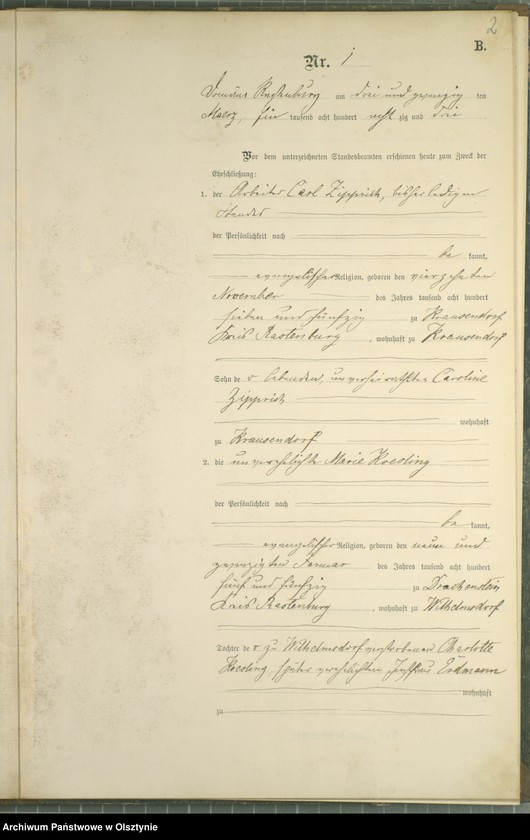 2
B.
Nr. 1
Domäne Rastenburg am drei und zwanzig ten
Maerz, ein tausend acht hundert acht zig und drei
Vor dem unterzeichneten Standesbeamten erschienen heute zum Zweck der
Eheschließung:
1. der Arbeiter Carl Zipprick, bisher ledigen
Standes
der Persönlichkeit nach
be kannt,
evangelischer Religion, geboren den vierzehnten
November des Jahres tausend acht hundert
sieben und fünfzig zu Krausendorf
Kreis Rastenburg, wohnhaft zu Krausendorf
Sohn de r lebenden, unverheiratheten Caroline
Zipprick
wohnhaft
zu Krausendorf
2. die unverehelichte Marie Hoesling
der Persönlichkeit nach
be kannt,
evangelischer Religion, geboren den neun und
zwanzigsten Januar des Jahres tausend acht hundert
fünf und fünfzig zu Drachenstein
Kreis Rastenburg, wohnhaft zu Wilhelmsdorf
Tochter de r zu Wilhelmsdorf verstorbenen Charlotte
Hoesling, später verehelichten Erdmann
wohnhaft
zu
Archiwum Państwowe w Olsztynie